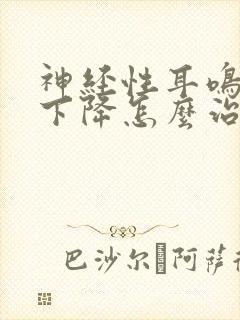 神经性耳鸣
下降怎麼治
巴沙尔 阿萨